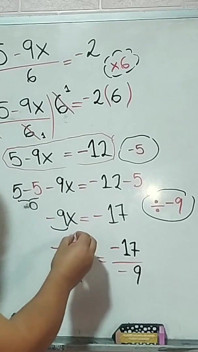 5 - 9x / 6 = -2 (×6)
5 - 9x / 6 | 6 1 = -2(6)
5 - 9x = -12 -5
5 - 5 - 9x = -12 - 5
-9x = -17 ÷ -9
= -17 / -9